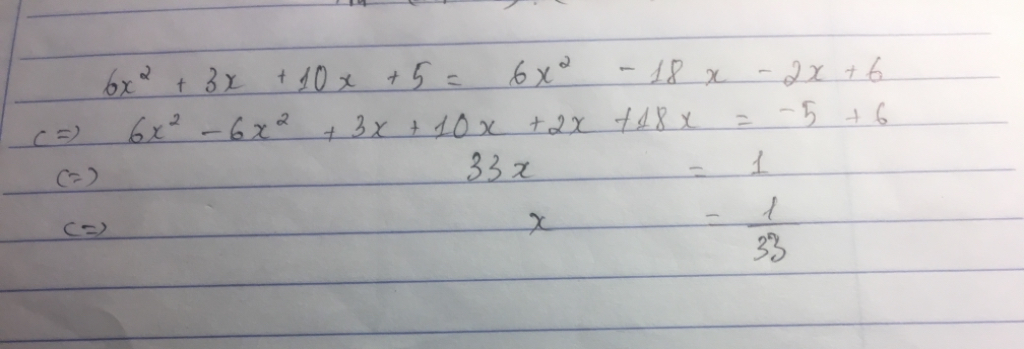 6x² + 3x + 10x + 5 = 6x² - 18x - 2x + 6
(=) 6x² - 6x² + 3x + 10x + 2x + 18x = -5 + 6
(=) 33x = 1
(=) x = 1/33